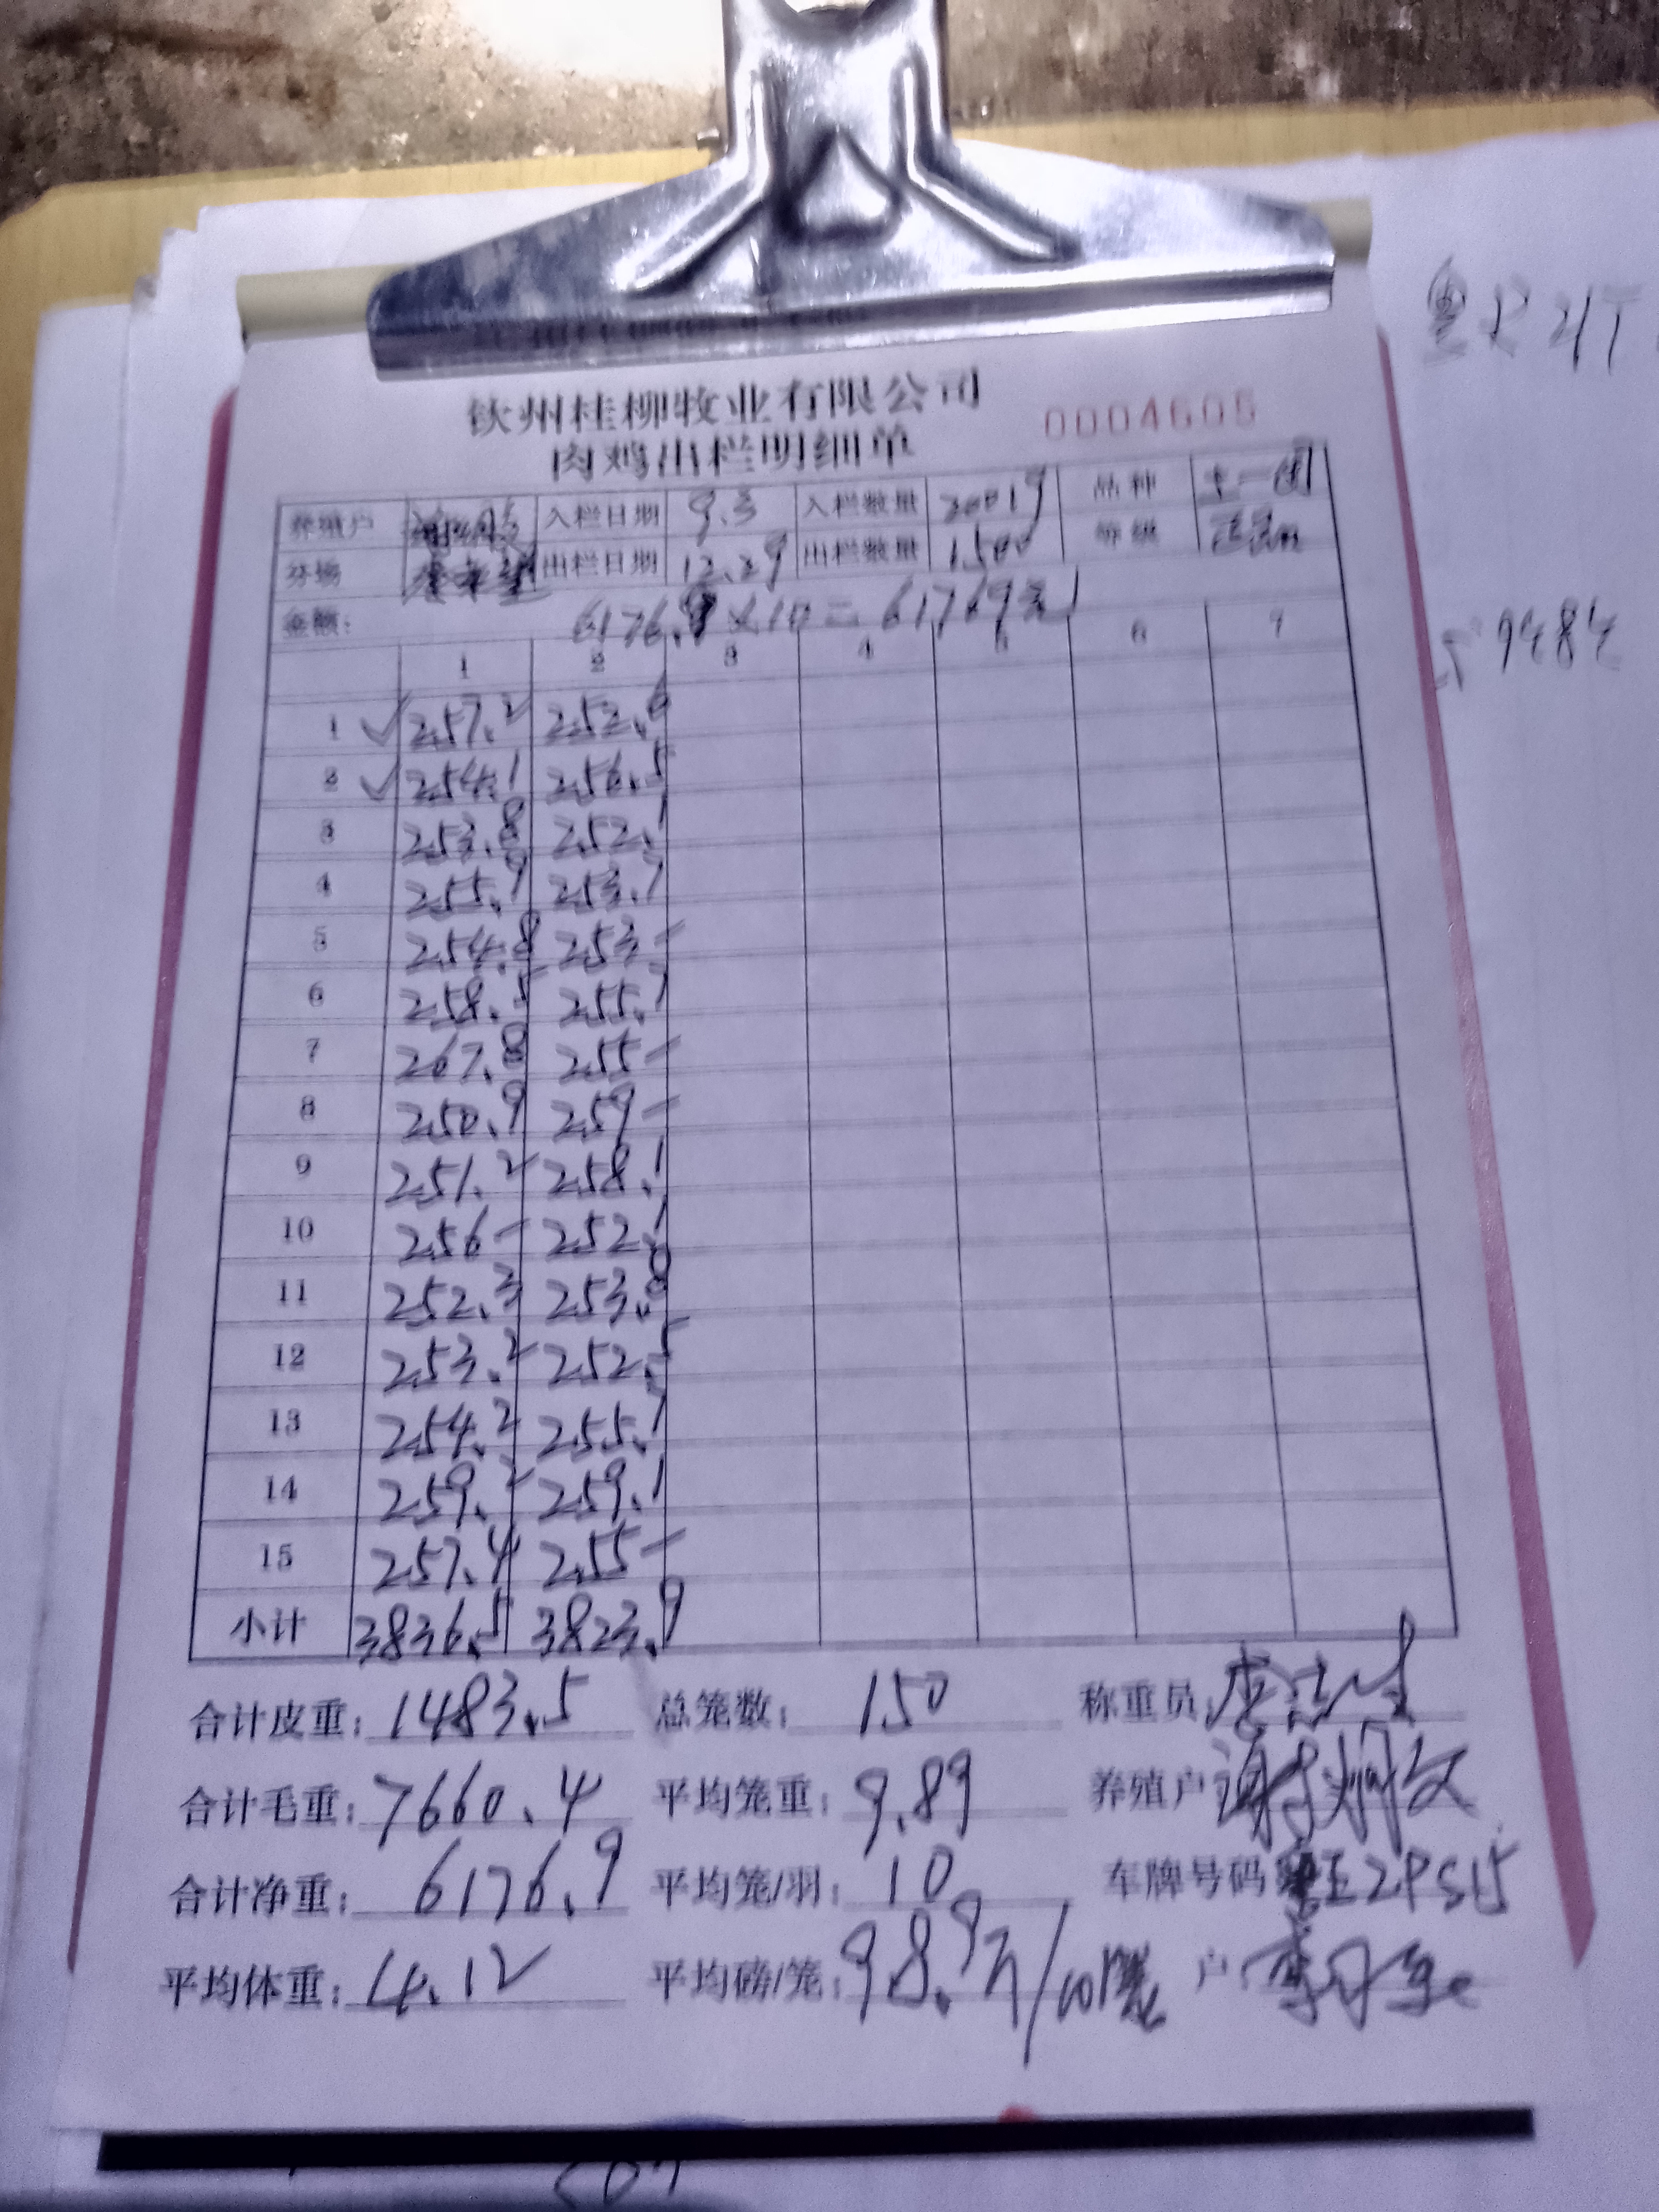 钦州桂柳牧业有限公司
肉鸡出栏明细单 0004605
养殖户 入栏日期 9.3 入栏数量 20019 品种 土一
分场 出栏日期 12.29 出栏数量 1500 等级
金额: 6176.9×10=61769元
1 2 3 4 5 6 7
1 ✓ 257.2 252.6
2 ✓ 254.1 256.5
3 253.8 252.1
4 255.9 253.7
5 254.8 253-
6 258.5 255.7
7 267.8 255-
8 250.9 259-
9 251.2 258.1
10 256- 252.1
11 252.3 253.8
12 253.2 252.5
13 254.2 255.7
14 259.2 259.1
15 257.4 255-
小计 3836.5 3823.9
合计皮重: 1483.5 总笼数: 150 称重员:
合计毛重: 7660.4 平均笼重: 9.89 养殖户
合计净重: 6176.9 平均笼/羽: 10 车牌号码
平均体重: 4.12 平均磅/笼: 98.9斤/ 户: